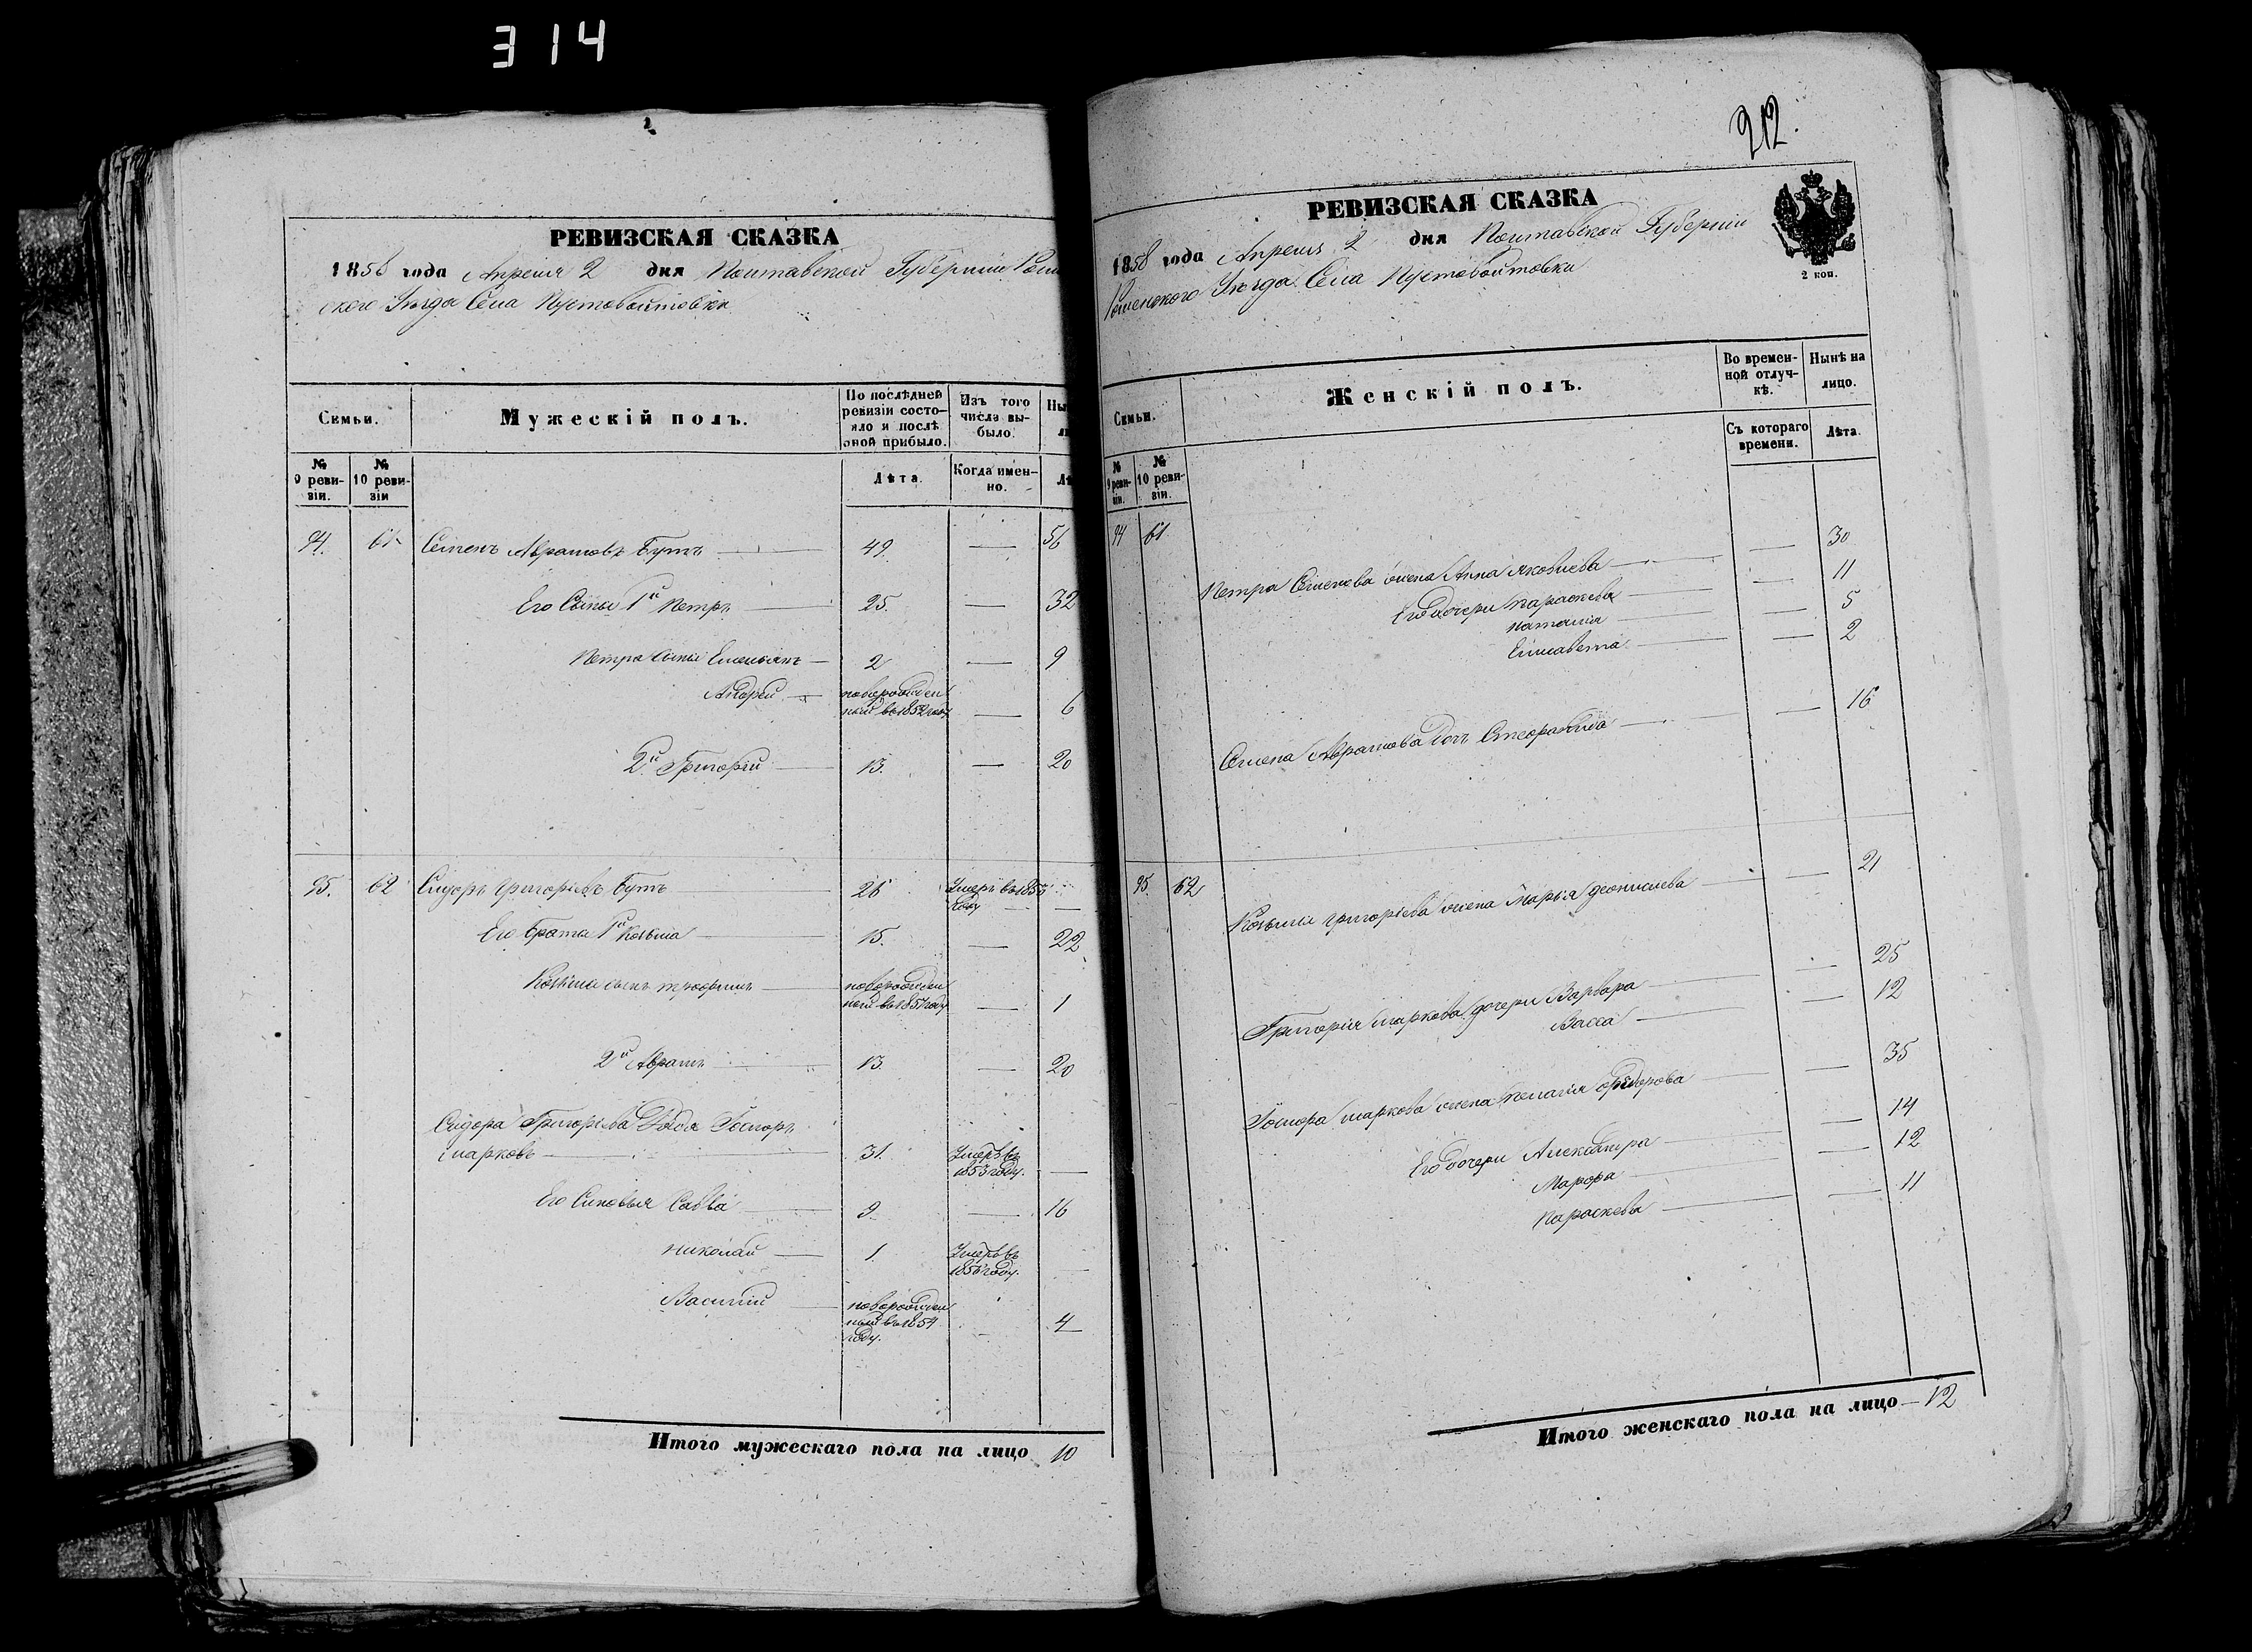 314
РЕВИЗСКАЯ СКАЗКА
1858 года Апреля 2 дня Полтавской Губернии Ромен
ского Уѣзда Села Пустовойтовки
Семьи.
Мужескій полъ.
По послѣдней ревизіи состояло и послѣ оной прибыло.
Изъ того числа выбыло.
Ны
№ 9 ревизіи.
№ 10 ревизіи
Лѣта.
Когда именно.
Лѣ
94. 61 Семенъ Аврамовъ Бутъ 49. — 56
Его Сыны 1й Петръ 25. — 32
Петра сыны Емельянъ 2 — 9
Андрей новорожден
ный въ 1852 году — 6
2й Григорій 13. — 20
95. 62 Сидоръ Григоріевъ Бутъ 26 Умеръ въ 1853
году —
Его брата 1й Козьма 15. — 22
Козьма сынъ Трофимъ новорожден
ный въ 1857 году — 1
2й Аврамъ 13. — 20
Сидора Григоріева Дядя
Марковъ 31. Умеръ въ
1853 году. —
Его Сыновья Савва 9. — 16
Николай 1. Умеръ въ
1856 году. —
Василій новорожден
ный въ 1854 — 4
году.
Итого мужескаго пола на лицо 10
212.
РЕВИЗСКАЯ СКАЗКА
1858 года Апреля 2 дня Полтавской Губерніи
2 коп.
Роменского Уѣзда Села Пустовойтовки
Семьи.
Женскій полъ.
Во временной отлучкѣ.
Нынѣ на лицо.
№ 9 ревизіи.
№ 10 ревизіи.
Съ котораго времени.
Лѣта.
94 61
Петра Семенова жена Анна Яковлева — 30
Его дочери Параскева — 11
Наталія — 5
Елисавета — 2
Семена Аврамова дочь — 16
95. 62
Козьмы Григоріева жена Марья Деонисиева — 21
Григорія Маркова дочери Варвара — 25
Васса — 12
Маркова жена Пелагія — 35
Его дочери Александра — 14
Марфа — 12
Параскева — 11
Итого женскаго пола на лицо — 12